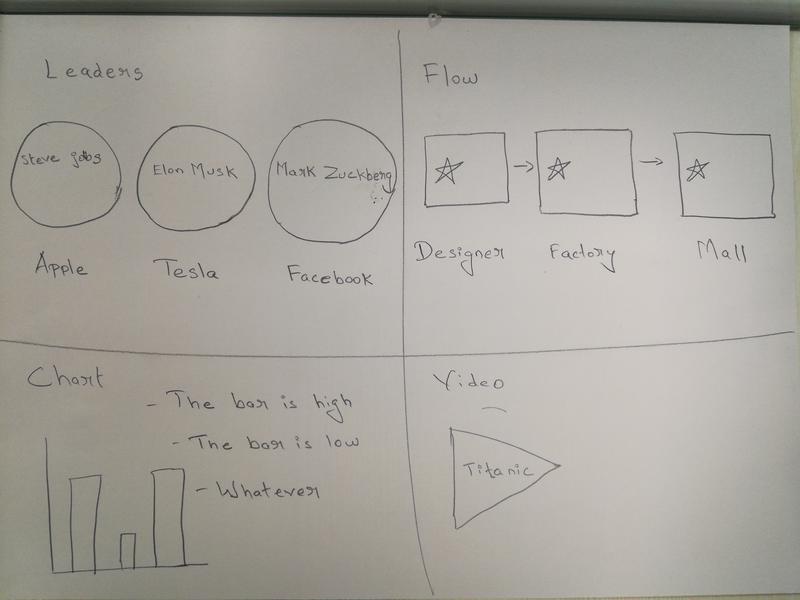 Leaders
Steve jobs
Elon Musk
Mark Zuckberg
Apple
Tesla
Facebook
Flow
Designer
Factory
Mall
Chart
- The bar is high
- The bar is low
- Whatever
Video
Titanic